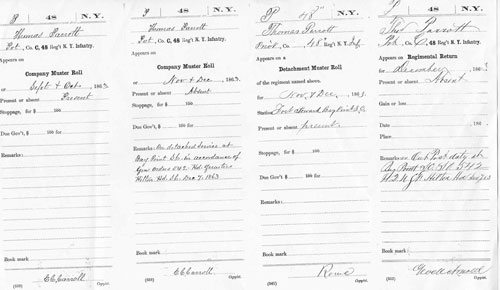 P 48 N.Y.
Thomas Parrott
Pvt, Co. C, 48 Reg't N. Y. Infantry.
Appears on
Company Muster Roll
for Sept & Oct, 1863
Present or absent Present
Stoppage, $ 100 for
Due Gov't $ 100 for
Remarks:
Book mark:
C C Carroll
(358) Copyist.
P 48 N.Y.
Thomas Parrott
Pvt, Co. C, 48 Reg't N. Y. Infantry.
Appears on
Company Muster Roll
for Nov & Dec, 1863
Present or absent Absent
Stoppage, $ 100 for
Due Gov't $ 100 for
Remarks: On detached service at
Bay Point S.C. in accordance of
Gen. Orders 542 Hd. Quarters
Hilton Hd. S.C. Dec 7, 1863
Book mark:
C C Carroll
(358) Copyist.
P 48" N.Y.
Thomas Parrott
Priv, Co. , 48 Reg't N. Y. Inf
Appears on a
Detachment Muster Roll
of the regiment named above,
for Nov. & Dec, 1863
Station Fort Seward Bay Point S.C.
Present or absent present
Stoppage, $ 100 for
Due Gov't $ 100 for
Remarks:
Book mark:
Copyist.
P 48 N.Y.
Thos Parrott
Co. C, 48 Reg't N. Y. Infantry.
Appears on
Regimental Return
for December, 1863
Present or absent Absent
Gain or loss
Date , 186
Place
Remarks: Out Post duty at
Bay Point S.C. S.O. 542
Hilton Hd Dec 7, 63
Book mark:
Copyist.